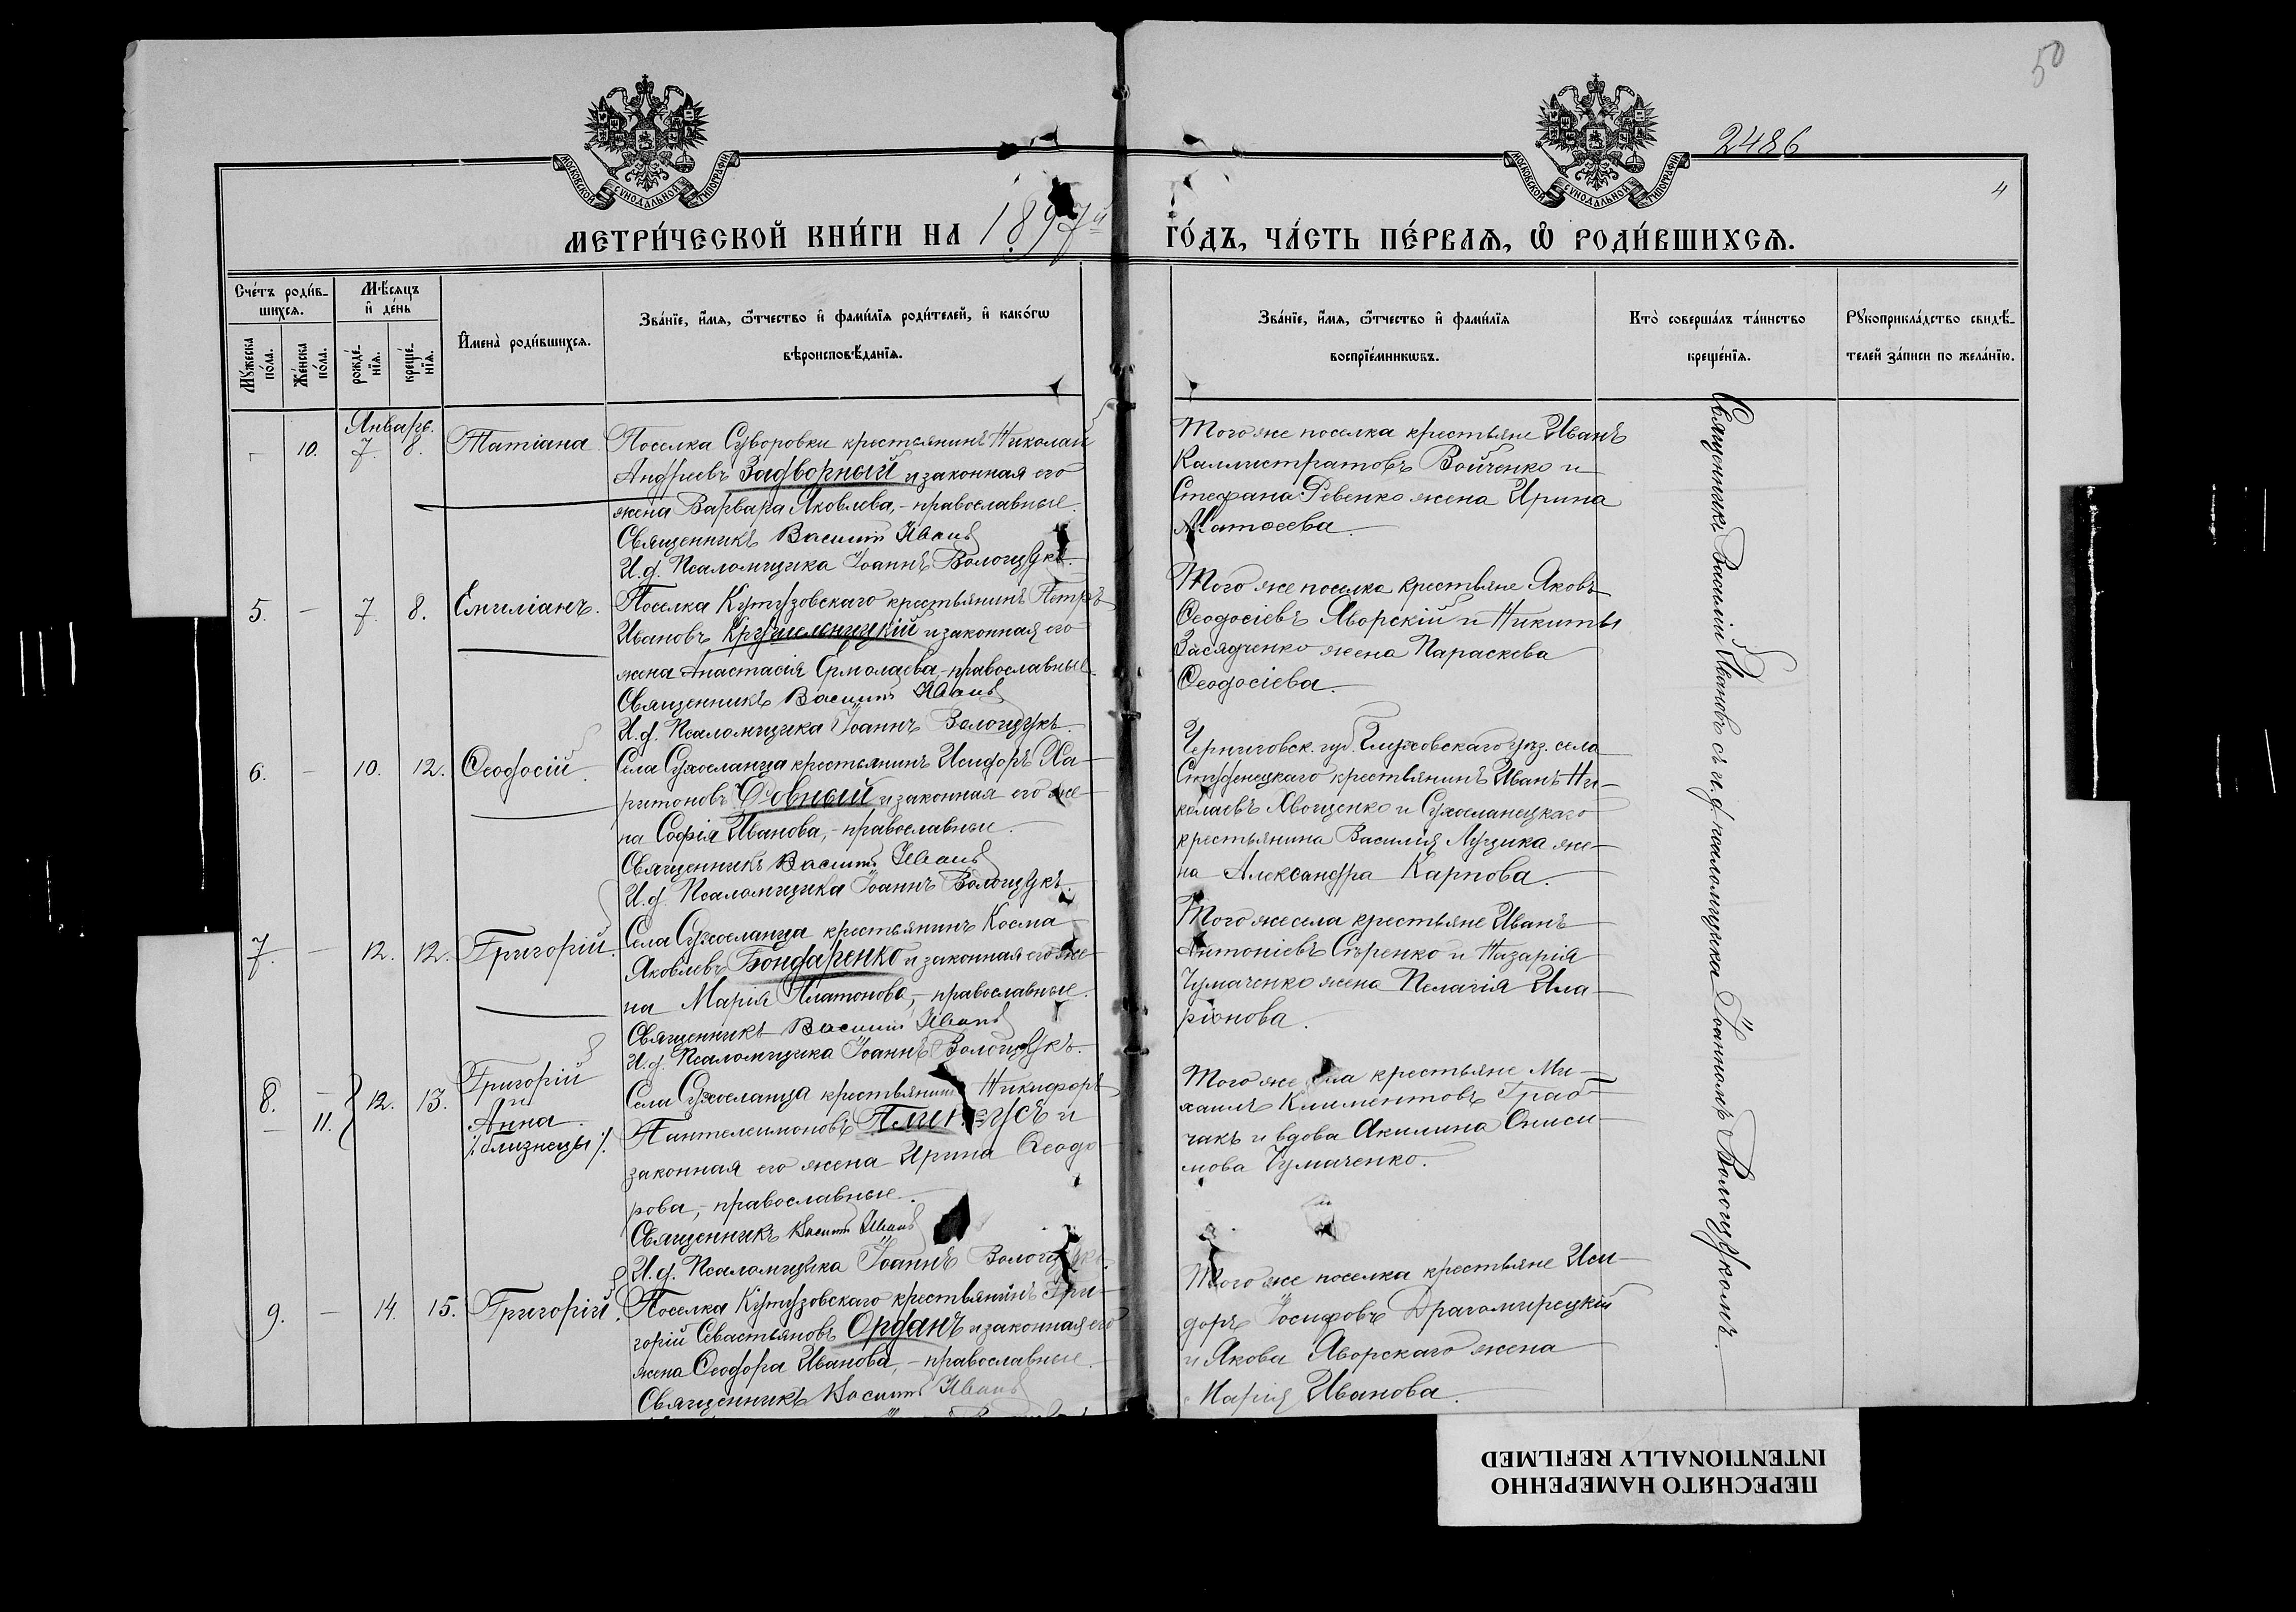 50
2486
4
МОСКОВСКОЙ СУНОДАЛЬНОЙ ТИПОГРАФІИ
МОСКОВСКОЙ СУНОДАЛЬНОЙ ТИПОГРАФІИ
МЕТРИ́ЧЕСКОЙ КНИ́ГИ НА 1897й
ГО́ДЪ, ЧА́СТЬ ПЕ́РВАѦ, Ѡ РОДИ́ВШИХСѦ.
Сче́тъ роди́в-
шихсѧ.
Мѣ́сѧцъ
и де́нь
Му́жеска
по́ла.
Же́нска
по́ла.
рожде́-
нїѧ.
креще́-
нїѧ.
Имена̀ роди́вшихсѧ.
Зва́нїе, и́мѧ, ѻ́тчество и фами́лїѧ роди́телей, и како́гѡ
вѣроисповѣ́данїѧ.
Зва́нїе, и́мѧ, ѻ́тчество и фами́лїѧ
воспрїе́мникѡвъ.
Кто̀ соверша́лъ та́инство
креще́нїѧ.
Рꙋкоприкла́дство свидѣ́-
телей за́писи по жела́нїю.
Январь.
- 10. 7. 8. Татіана. Поселка Суворовки крестьянинъ Николай
Андреевъ Задворный и законная его
жена Варвара Яковлева, - православные.
Священникъ Василій Ивановъ
И. д. Псаломщика Іоаннъ
Того же поселка крестьяне Иванъ
Каллистратовъ Войченко и
Стефана Ревенко жена Ирина
Матѳеева.
5. - 7. 8. Емиліанъ. Поселка Кутузовскаго крестьянинъ Петръ
Ивановъ Крушельницкій и законная его
жена Анастасія Ермолаева, - православные.
Священникъ Василій Ивановъ
И. д. Псаломщика Іоаннъ
Того же поселка крестьяне Яковъ
Ѳеодосіевъ Яворскій и Никиты
Засядченко жена Параскева
Ѳеодосіева.
6. - 10. 12. Ѳеодосій. Села Сухоеланца крестьянинъ Исидоръ Ха-
ритоновъ и законная его же-
на Софія Иванова, - православные.
Священникъ Василій Ивановъ
И. д. Псаломщика Іоаннъ
Черниговск. губ. Глуховскаго уѣз. села
Студенецкаго крестьянинъ Иванъ Ни-
колаевъ Хвощенко и Сухоеланецкаго
крестьянина Василія Луцика же-
на Александра Карпова.
7. - 12. 12. Григорій. Села Сухоеланца крестьянинъ Косма
Яковлевъ Бондаренко и законная его же-
на Марія Платонова, - православные.
Священникъ Василій Ивановъ
И. д. Псаломщика Іоаннъ
Того же села крестьяне Иванъ
Антоніевъ Сѣренко и Назарія
Чумаченко жена Пелагія Ила-
ріонова.
8. - 11. 12. 13. Григорій
и
Анна.
/: близнецы :/.
Села Сухоеланца крестьянинъ Никифоръ
Пантелеимоновъ и
законная его жена Ирина Ѳеодо-
рова, - православные.
Священникъ Василій Ивановъ
И. д. Псаломщика Іоаннъ
Того же села крестьяне Ми-
хаилъ Климентовъ Граб-
чакъ и вдова Акилина Ониси-
мова Чумаченко.
9. - 14. 15. Григорій. Поселка Кутузовскаго крестьянинъ Гри-
горій Севастьяновъ Орданъ и законная его
жена Ѳеодора Иванова, - православные.
Священникъ Василій Ивановъ
Того же поселка крестьяне Иси-
доръ Іосифовъ Драгомирецкій
и Якова Яворскаго жена
Марія Иванова.
Священникъ Василій Ивановъ съ и. д. псаломщика Іоанномъ
ПЕРЕСНЯТО НАМЕРЕННО
INTENTIONALLY REFILMED